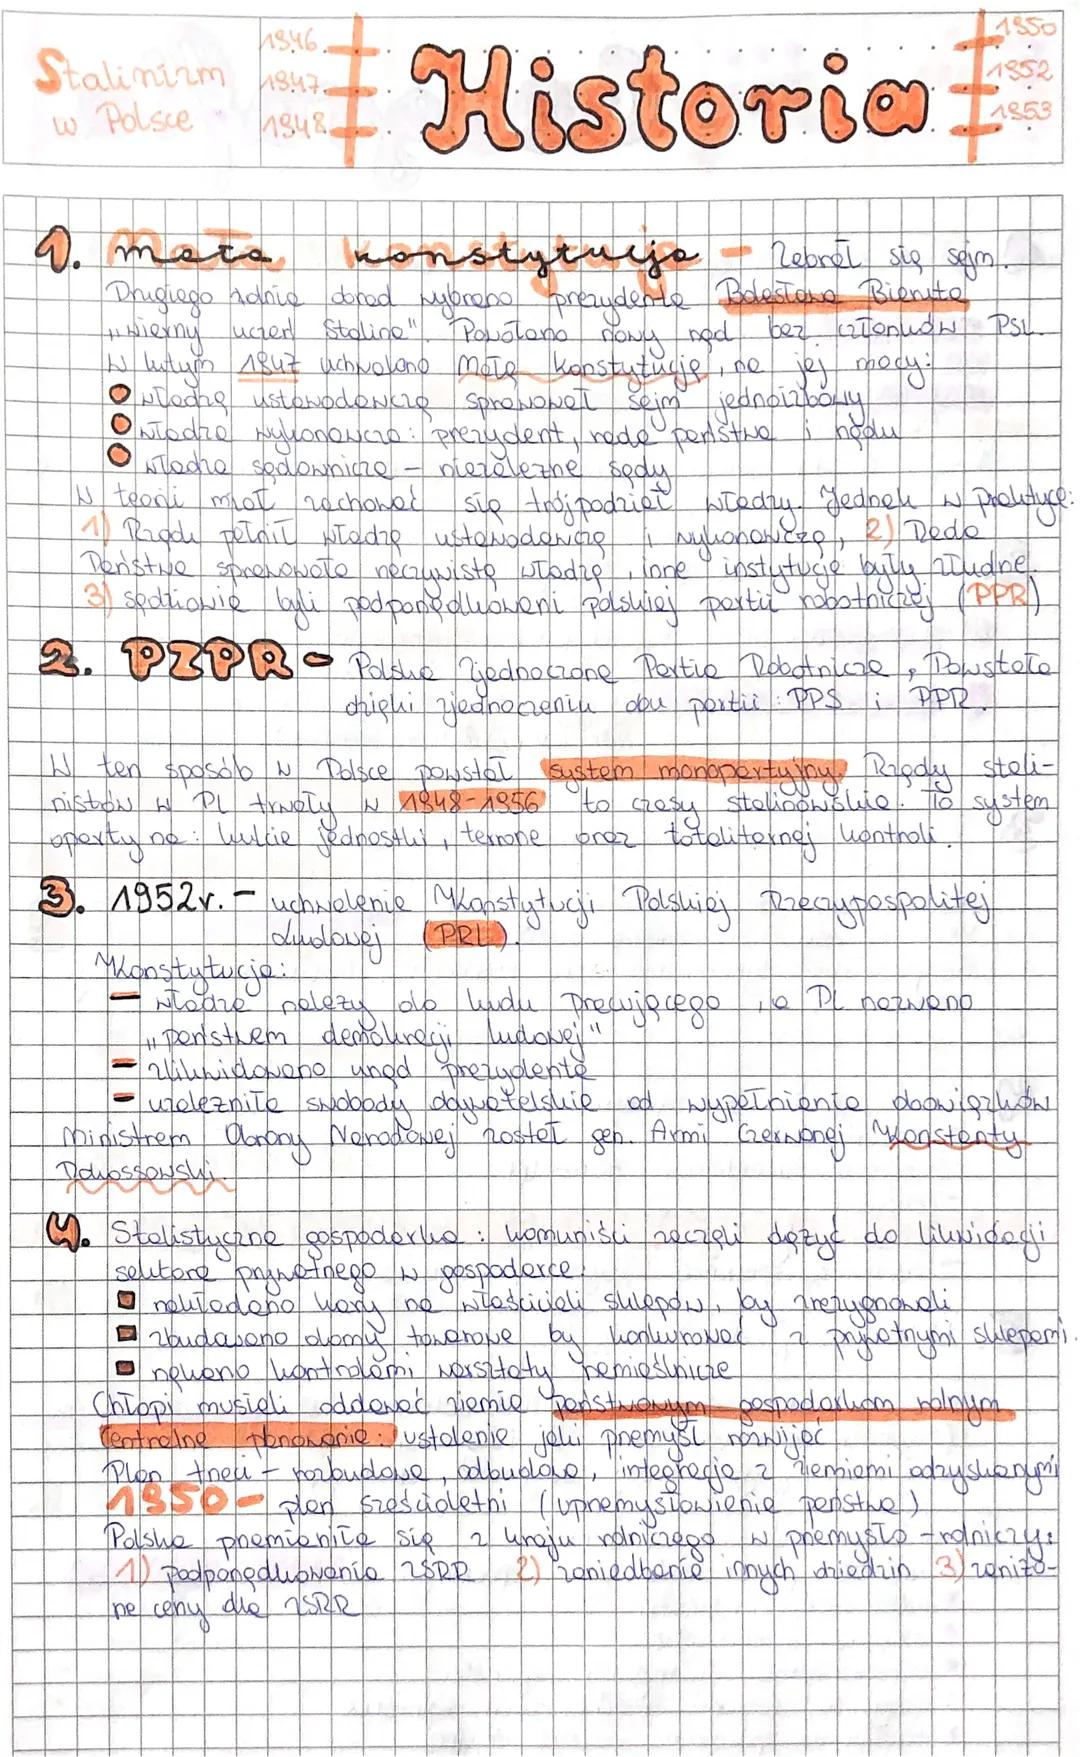 Stalinizm
w Polsce
1946
1947
1948
Historia
1950
1952
1953
1. Mała konstytucja - Zebrał się sejm.
Drugiego zdnia obrad wybrano prezydenta Bolesława Bieruta
„wierny uczeń Stalina". Powołano nowy rząd bez członków PSL.
W lutym 1947 uchwalono Małą Konstytucję, na jej mocy:
władzę ustawodawczą sprawował sejm jednoizbowy
władza wykonawcza: prezydent, rada państwa i rządu
władza sądownicza - niezależne sądy
W teorii miał zachować się trójpodział władzy. Jednak w praktyce:
1) Rządu pełnił władzę ustawodawczą i wykonawczą, 2) Rada
Państwa sprawowała rzeczywistą władzę, inne instytucje były złudne.
3) sędziowie byli podporządkowani polskiej partii robotniczej (PPR)
2. PZPR - Polska Zjednoczona Partia Robotnicza, Powstała
dzięki zjednoczeniu obu partii: PPS i PPR.
W ten sposób w Polsce powstał system monopartyjny. Rządy stali-
nistów w PL trwały w 1948-1956 to czasy stalinowskie. To system
oparty na: kulcie jednostki, terrorze oraz totalitarnej kontroli.
3. 1952r. - uchwalenie Konstytucji Polskiej Rzeczypospolitej
Ludowej (PRL).
Konstytucja:
- władza należy do ludu pracującego, a PL nazwano
„państwem demokracji ludowej"
- zlikwidowano urząd prezydenta
- uzależniła swobody obywatelskie od wypełniania obowiązków
Ministrem Obrony Narodowej został gen. Armi Czerwonej Konstanty
Rokossowski
4. Stalistyczna gospodarka: komuniści zaczęli dążyć do likwidacji
sektora prywatnego w gospodarce:
nakładano kary na właścicieli sklepów, by zrezygnowali
zbudowano domy towarowe by konkurować z prywatnymi sklepami.
nękano kontrolami warsztaty rzemieślnicze
Chłopi musieli oddawać ziemie państwowym gospodarkom rolnym
Centralne planowanie: ustalenie jaki przemysł rozwijać
Plan trzeci - rozbudowa, odbudowa, integracja z ziemiami odzyskanymi
1950 - plan sześcioletni (uprzemysłowienie państwa)
Polska przemieniła się z kraju rolniczego w przemysło-rolniczy:
1) podporządkowania ZSRR 2) zaniedbanie innych dziedzin 3) zaniżo-
ne ceny dla ZSRR